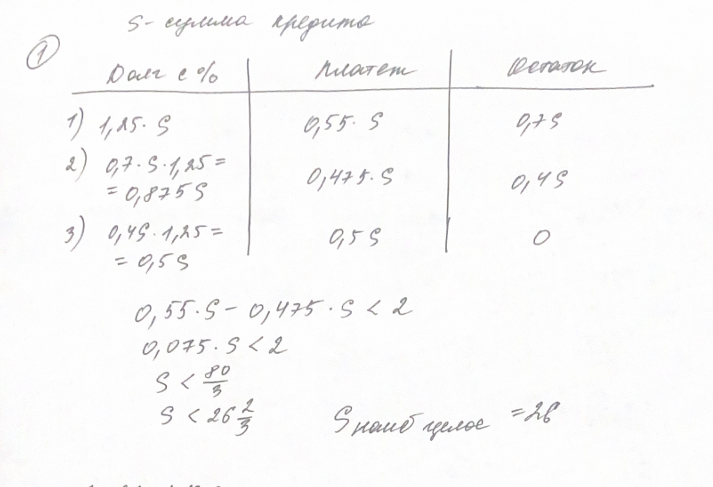 S - сумма кредита
①
Долг с % Платеж Остаток
1) 1,25 · S 0,55 · S 0,7S
2) 0,7 · S · 1,25 = 0,475 · S 0,4S
= 0,875S
3) 0,4S · 1,25 = 0,5S 0
= 0,5S
0,55 · S - 0,475 · S < 2
0,075 · S < 2
S < 80/3
S < 26 2/3 S наиб целое = 26